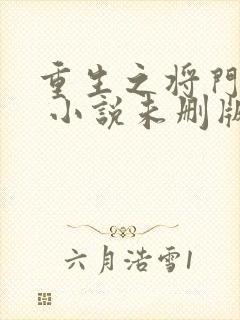 重生之将門
小說未删版
六月浩雪1